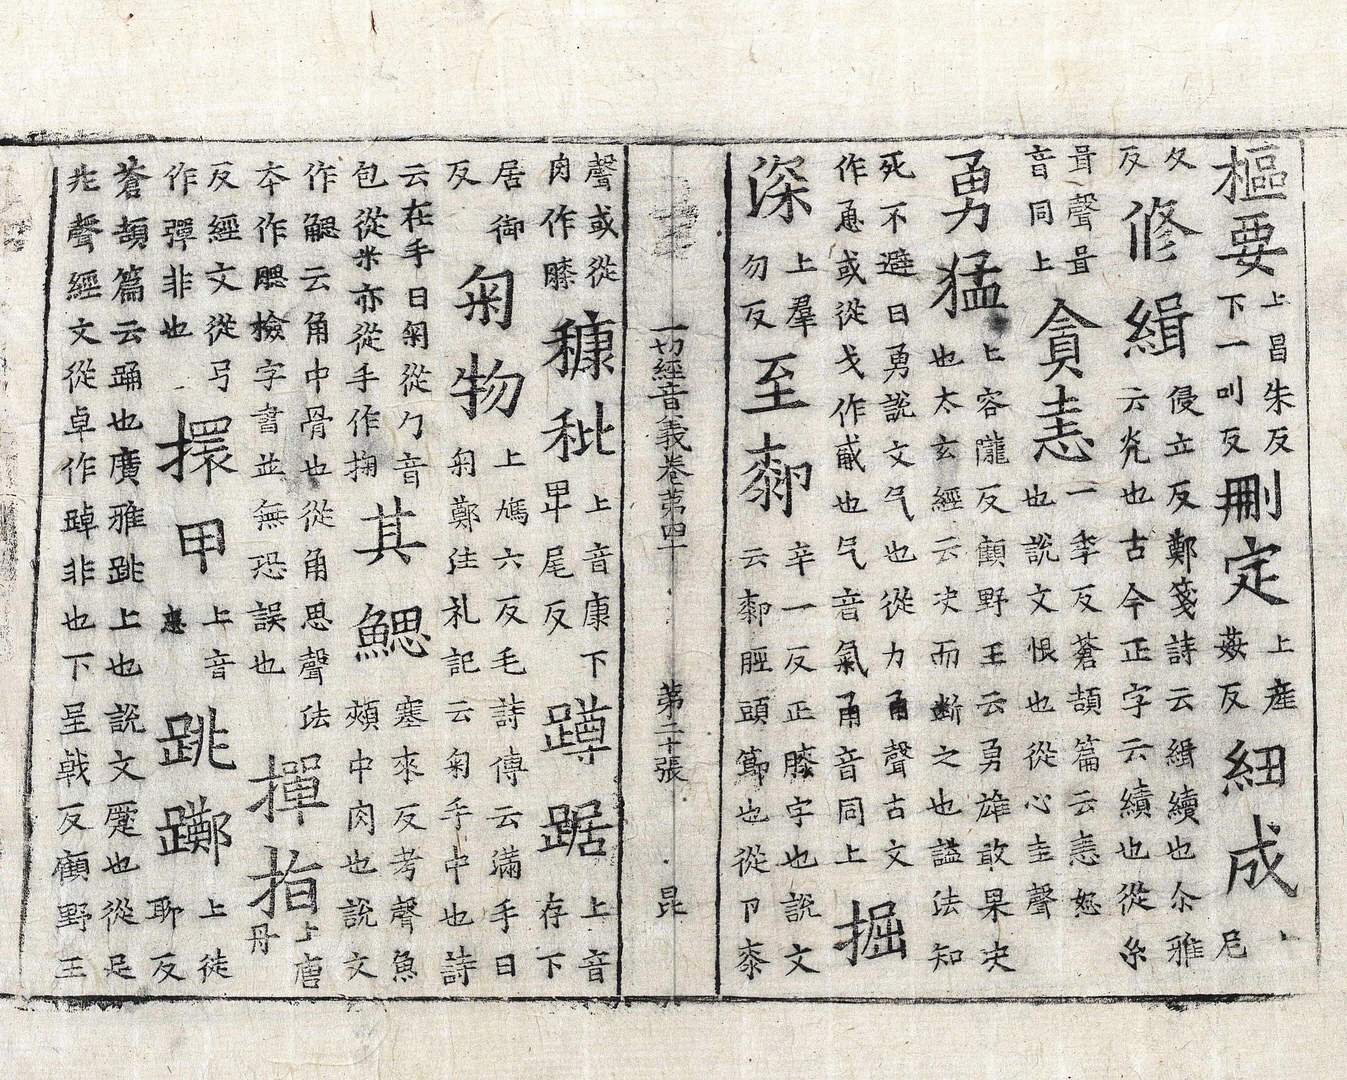 樞要上昌朱反下一叫反刪定上産姦反紐成尼
夂反修緝侵立反鄭箋詩云緝續也尒雅云光也古今正字云續也從糸
咠聲咠音同上貪恚一季反蒼頡篇云恚怒也說文恨也從心圭聲
勇猛上容隴反顧野王云勇雄敢果决也太玄經云决而斷之也謚法知
死不避曰勇說文气也從力甬聲古文作恿或從戈作㦷也气音氣甬音同上掘
深上羣勿反至厀辛一反正膝字也說文云厀脛頭節也從卪桼
一切經音義卷第四十 第二十張 昆
聲或從肉作膝穅秕上音康下卑尾反蹲踞上音存下
居御反匊物上鳩六反毛詩傳云滿手曰匊鄭注礼記云匊手中也詩
云在手曰匊從勹音包從米亦從手作掬其鰓塞來反考聲魚頰中肉也說文
作䚡云角中骨也從角思聲法本作腮檢字書並無恐誤也揮指上唐丹
反經文從弓作彈非也擐甲上音患跳躑上徒聊反
蒼頡篇云踊也廣雅跳上也說文蹷也從足兆聲經文從卓作踔非也下呈戟反顧野王